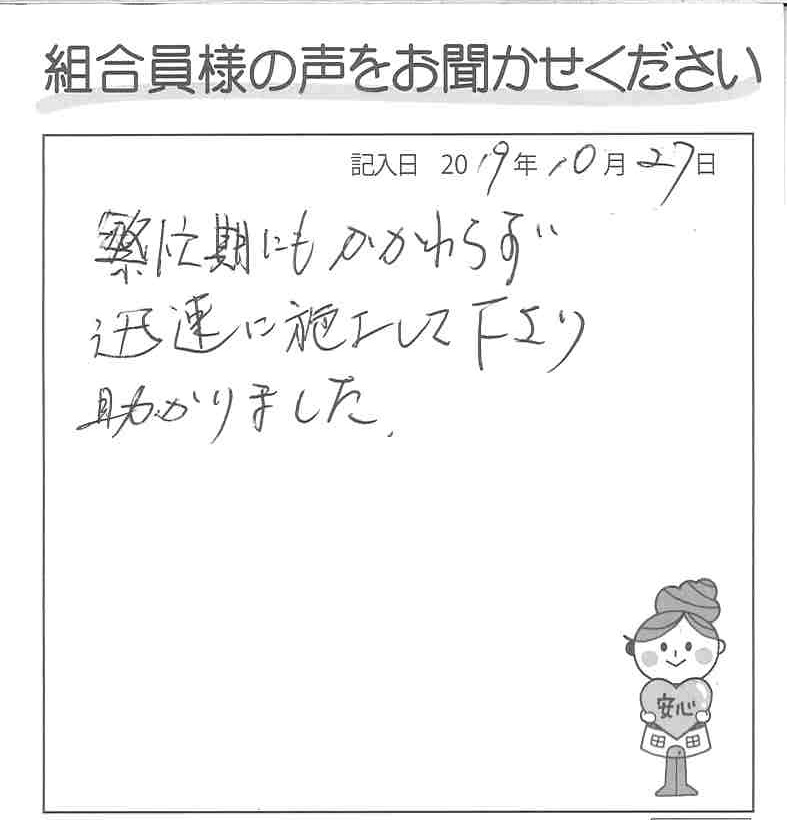 組合員様の声をお聞かせください
記入日 2019年10月27日
繁忙期にもかかわらず
迅速に施工して下さり
助かりました.
安心